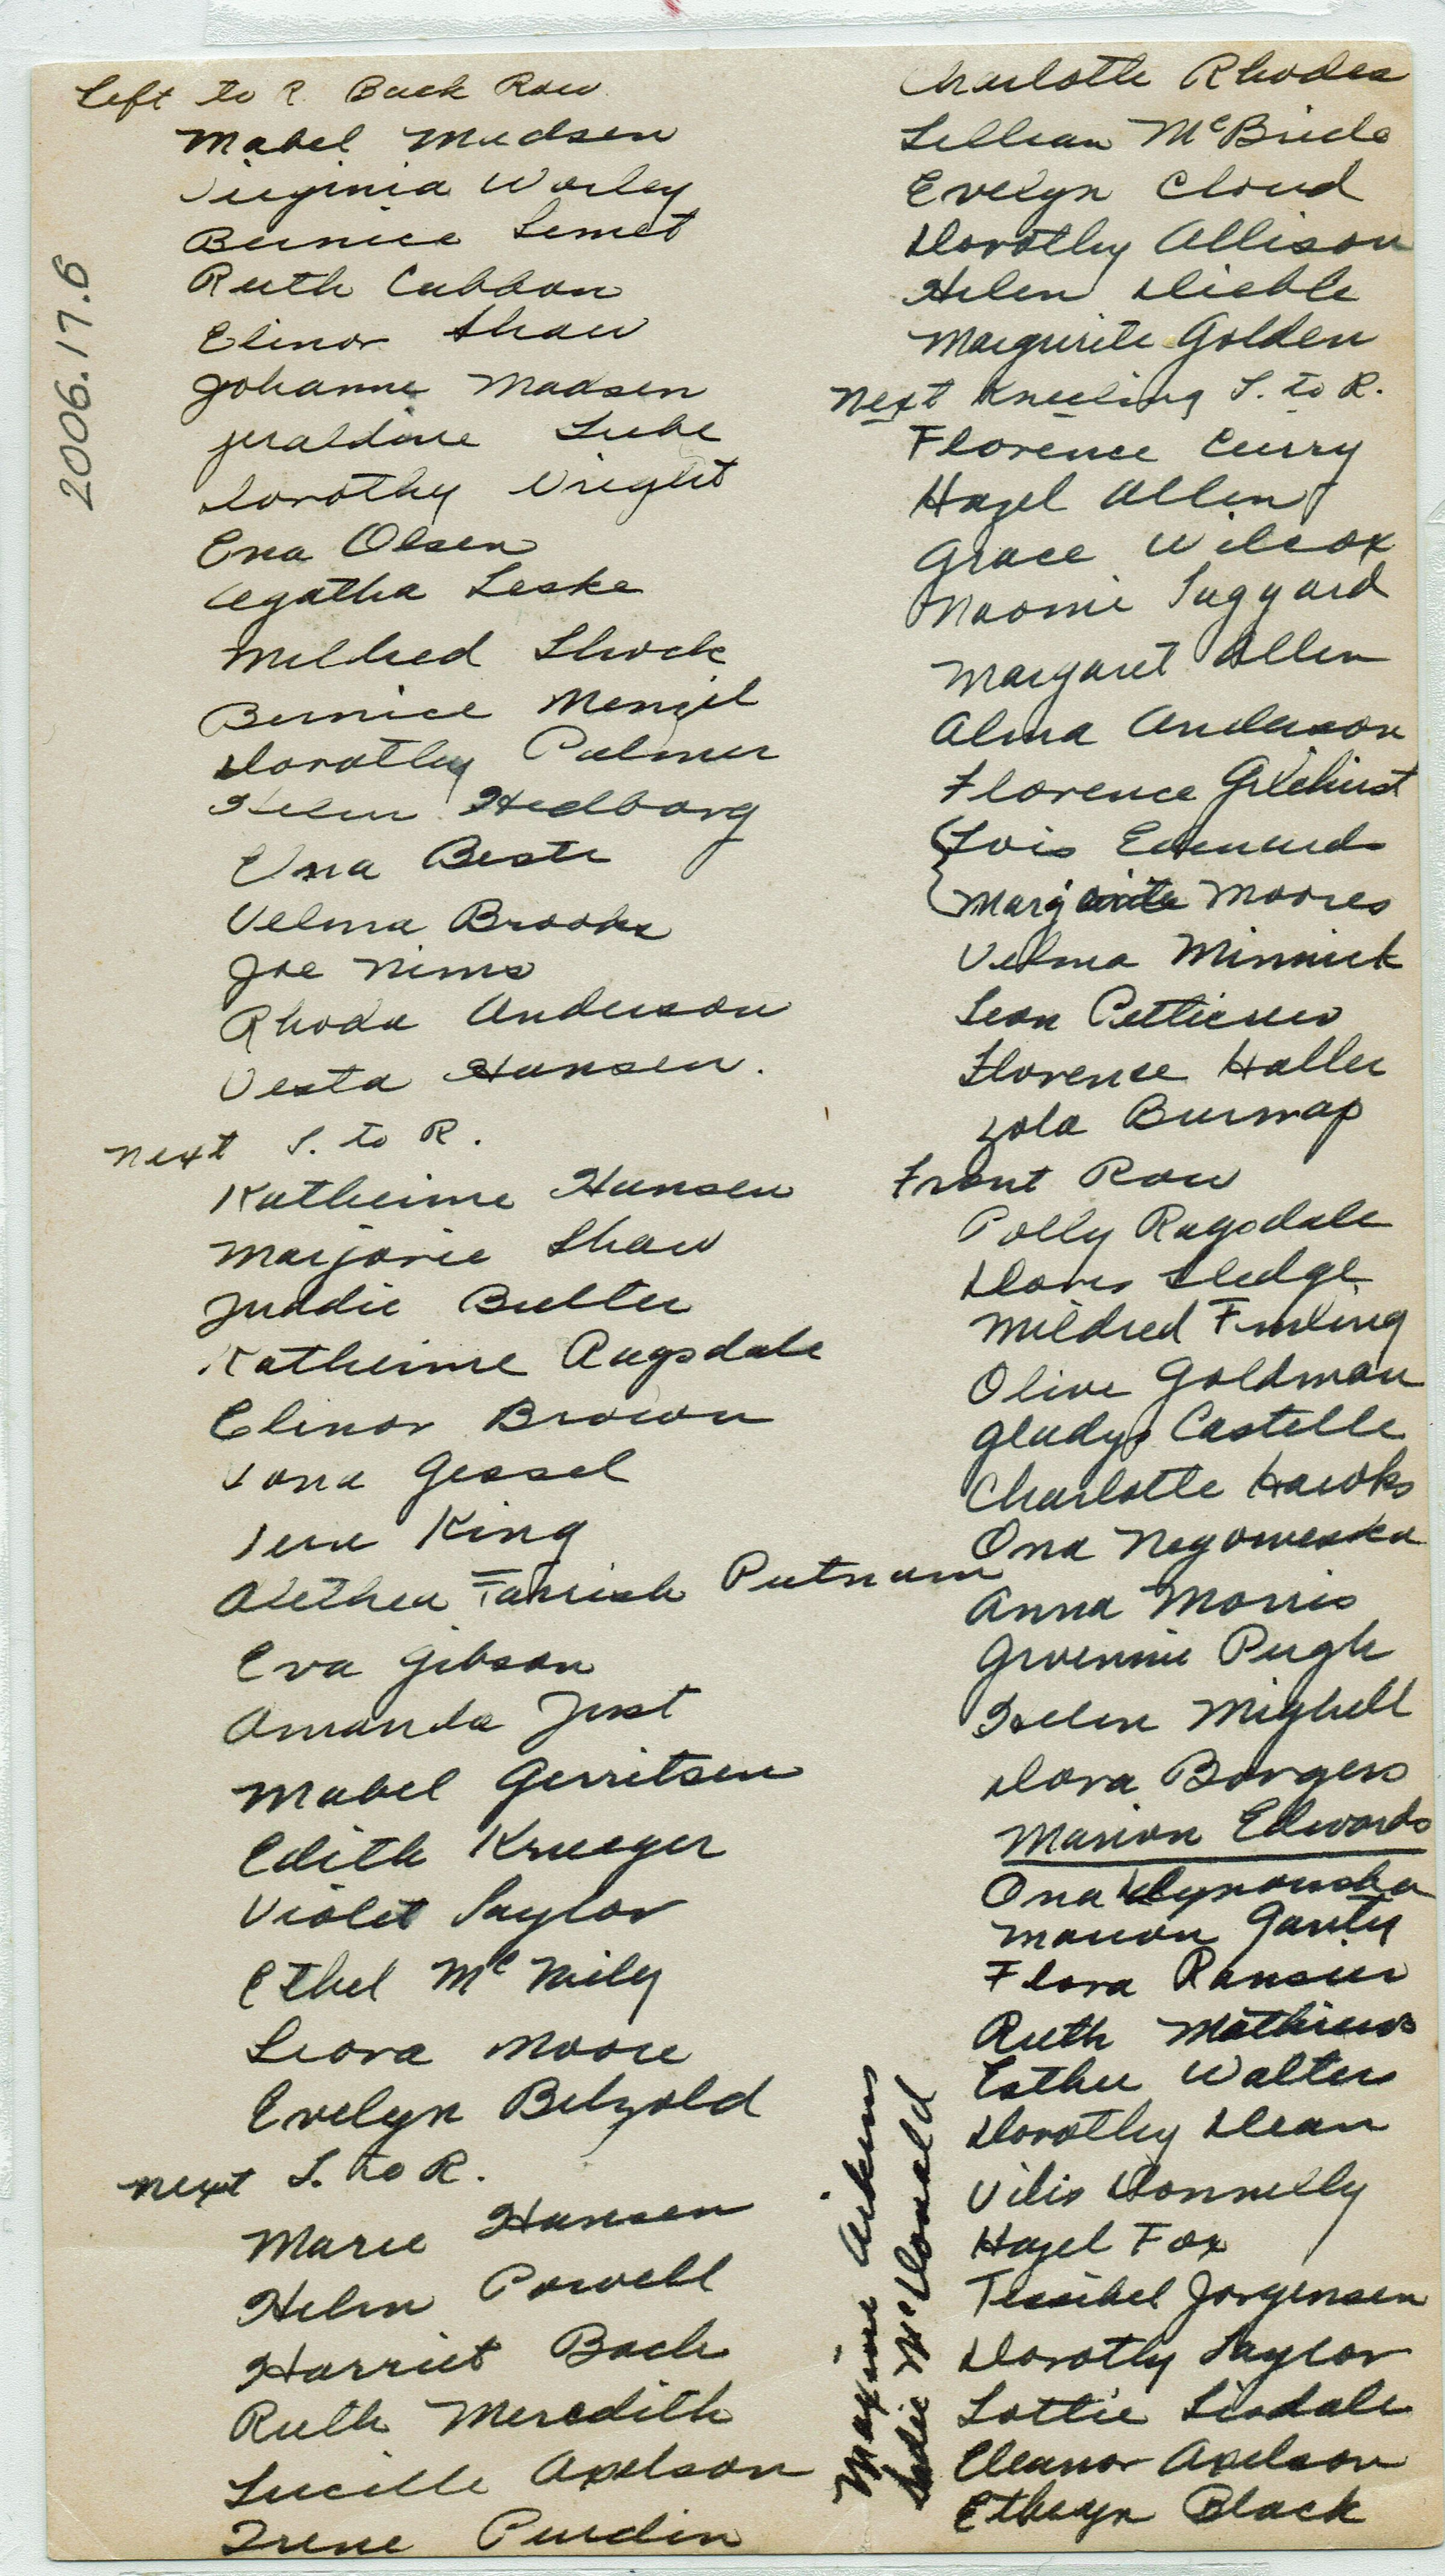 Left to R. Back Row
Mabel Madsen
Virginia Worley
Bernice Semet
Ruth Cubbon
Elinor Shaw
Johanne Madsen
Jeraldine Luhe
Dorothy Wright
Ena Olsen
Agatha Leske
Mildred Shock
Bernice Menzel
Dorothy Palmer
Helen Hedborg
Una Beste
Velma Brooks
Joe Nims
Rhoda Anderson
Vesta Hansen.
Next L. to R.
Katherine Hansen
Marjorie Shaw
Juddie Butler
Katherine Ragsdale
Elinor Brown
Iona Gessel
King
Alethea Tanish Putnam
Eva Gibson
Amanda Just
Mabel Gerritsen
Edith Krueger
Violet Saylor
Ethel McNeily
Leora Moore
Evelyn Betzold
Next L. to R.
Marie Hansen
Helen Powell
Harriet Bach
Ruth Meredith
Lucille Axelson
Irene Purdin
Charlotte Rhodes
Lillian McBride
Evelyn Cloud
Dorothy Allison
Helen Dieble
Marguerite Golden
Next Kneeling L. to R.
Florence Curry
Hazel Allen
Grace Wilcox
Naomie Taggard
Margaret Allen
Alma Anderson
Florence Gilchrist
Lois Edwards
Margarite Moores
Velma Minnick
Leon Petticrew
Florence Haller
Zola Burnap
Front Row
Polly Ragsdale
Doris Sledge
Mildred Fruling
Olive Goldman
Gladys Castelle
Charlotte Hawks
Ona
Anna Morris
Pugh
Helen Mighell
Dora Borgers
Marion Edwards
Ona
Marion Garity
Flora Ransier
Ruth Mathiews
Esther Walters
Dorothy Dean
Vilis Donnelly
Hazel Fox
Tessibel Jorgensen
Dorothy Saylor
Lottie Lisdale
Eleanor Axelson
Ethelyn Black
Maxine Aikens
Sadie McDonald
2006.17.6